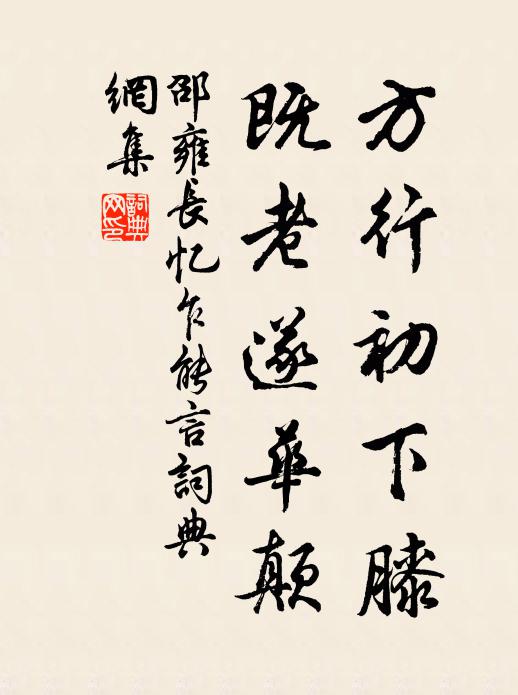 方行初下膝
既老遂华颠
邵雍长忆乍能言詞典
網集
詞典
网印